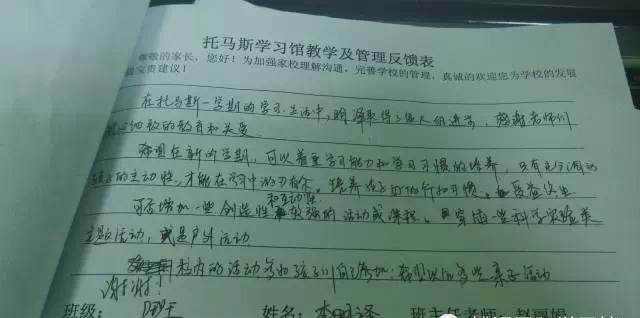 托马斯学习馆教学及管理反馈表
尊敬的家长，您好！为加强家校理解沟通，完善学校的管理，真诚的欢迎您为学校的发展
宝贵建议！
在托马斯一学期的学习生活中，明泽取得了惊人的进步，感谢老师们
细致的教育和关爱
希望在新的学期，可以着重学习能力和学习习惯的培养，只有充分调动
孩子的主动性，才能在学习中游刃有余。培养孩子 习惯。
和互动性
可否增加一些创造性 较强的活动或课程。穿插一些科学实验类
主题活动，或是户外活动
校内的活动 孩子们自己参加，希望以后多些亲子活动
谢谢！
班级： 姓名：李明泽 班主任老师：赵丽娟